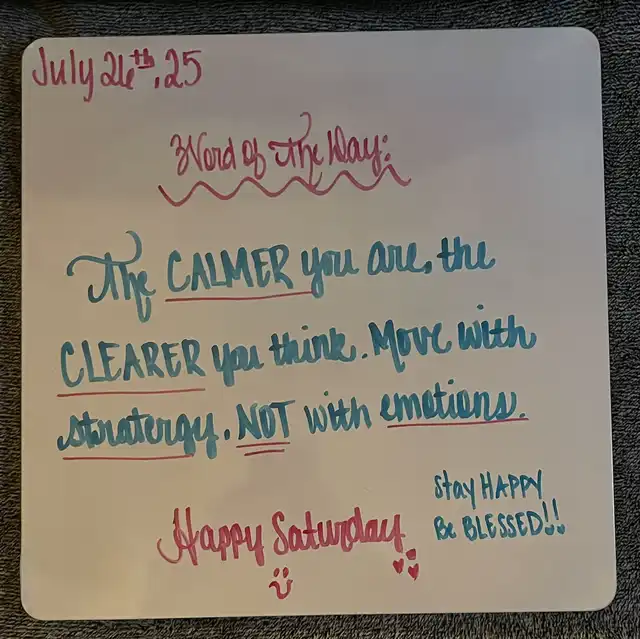 July 26th, 25
Word of The Day:
The CALMER you are, the
CLEARER you think. Move with
stratergy. NOT with emotions.
Stay HAPPY
Be BLESSED!!
Happy Saturday